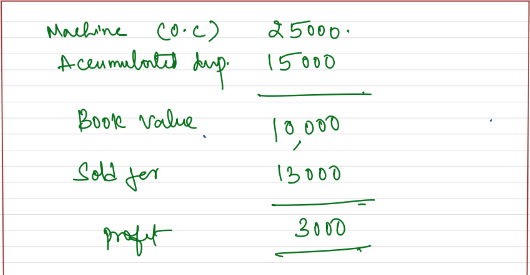 Machine (O.C) 25000.
Accumulated dep. 15000
Book value 10,000
Sold for 13000
profit 3000